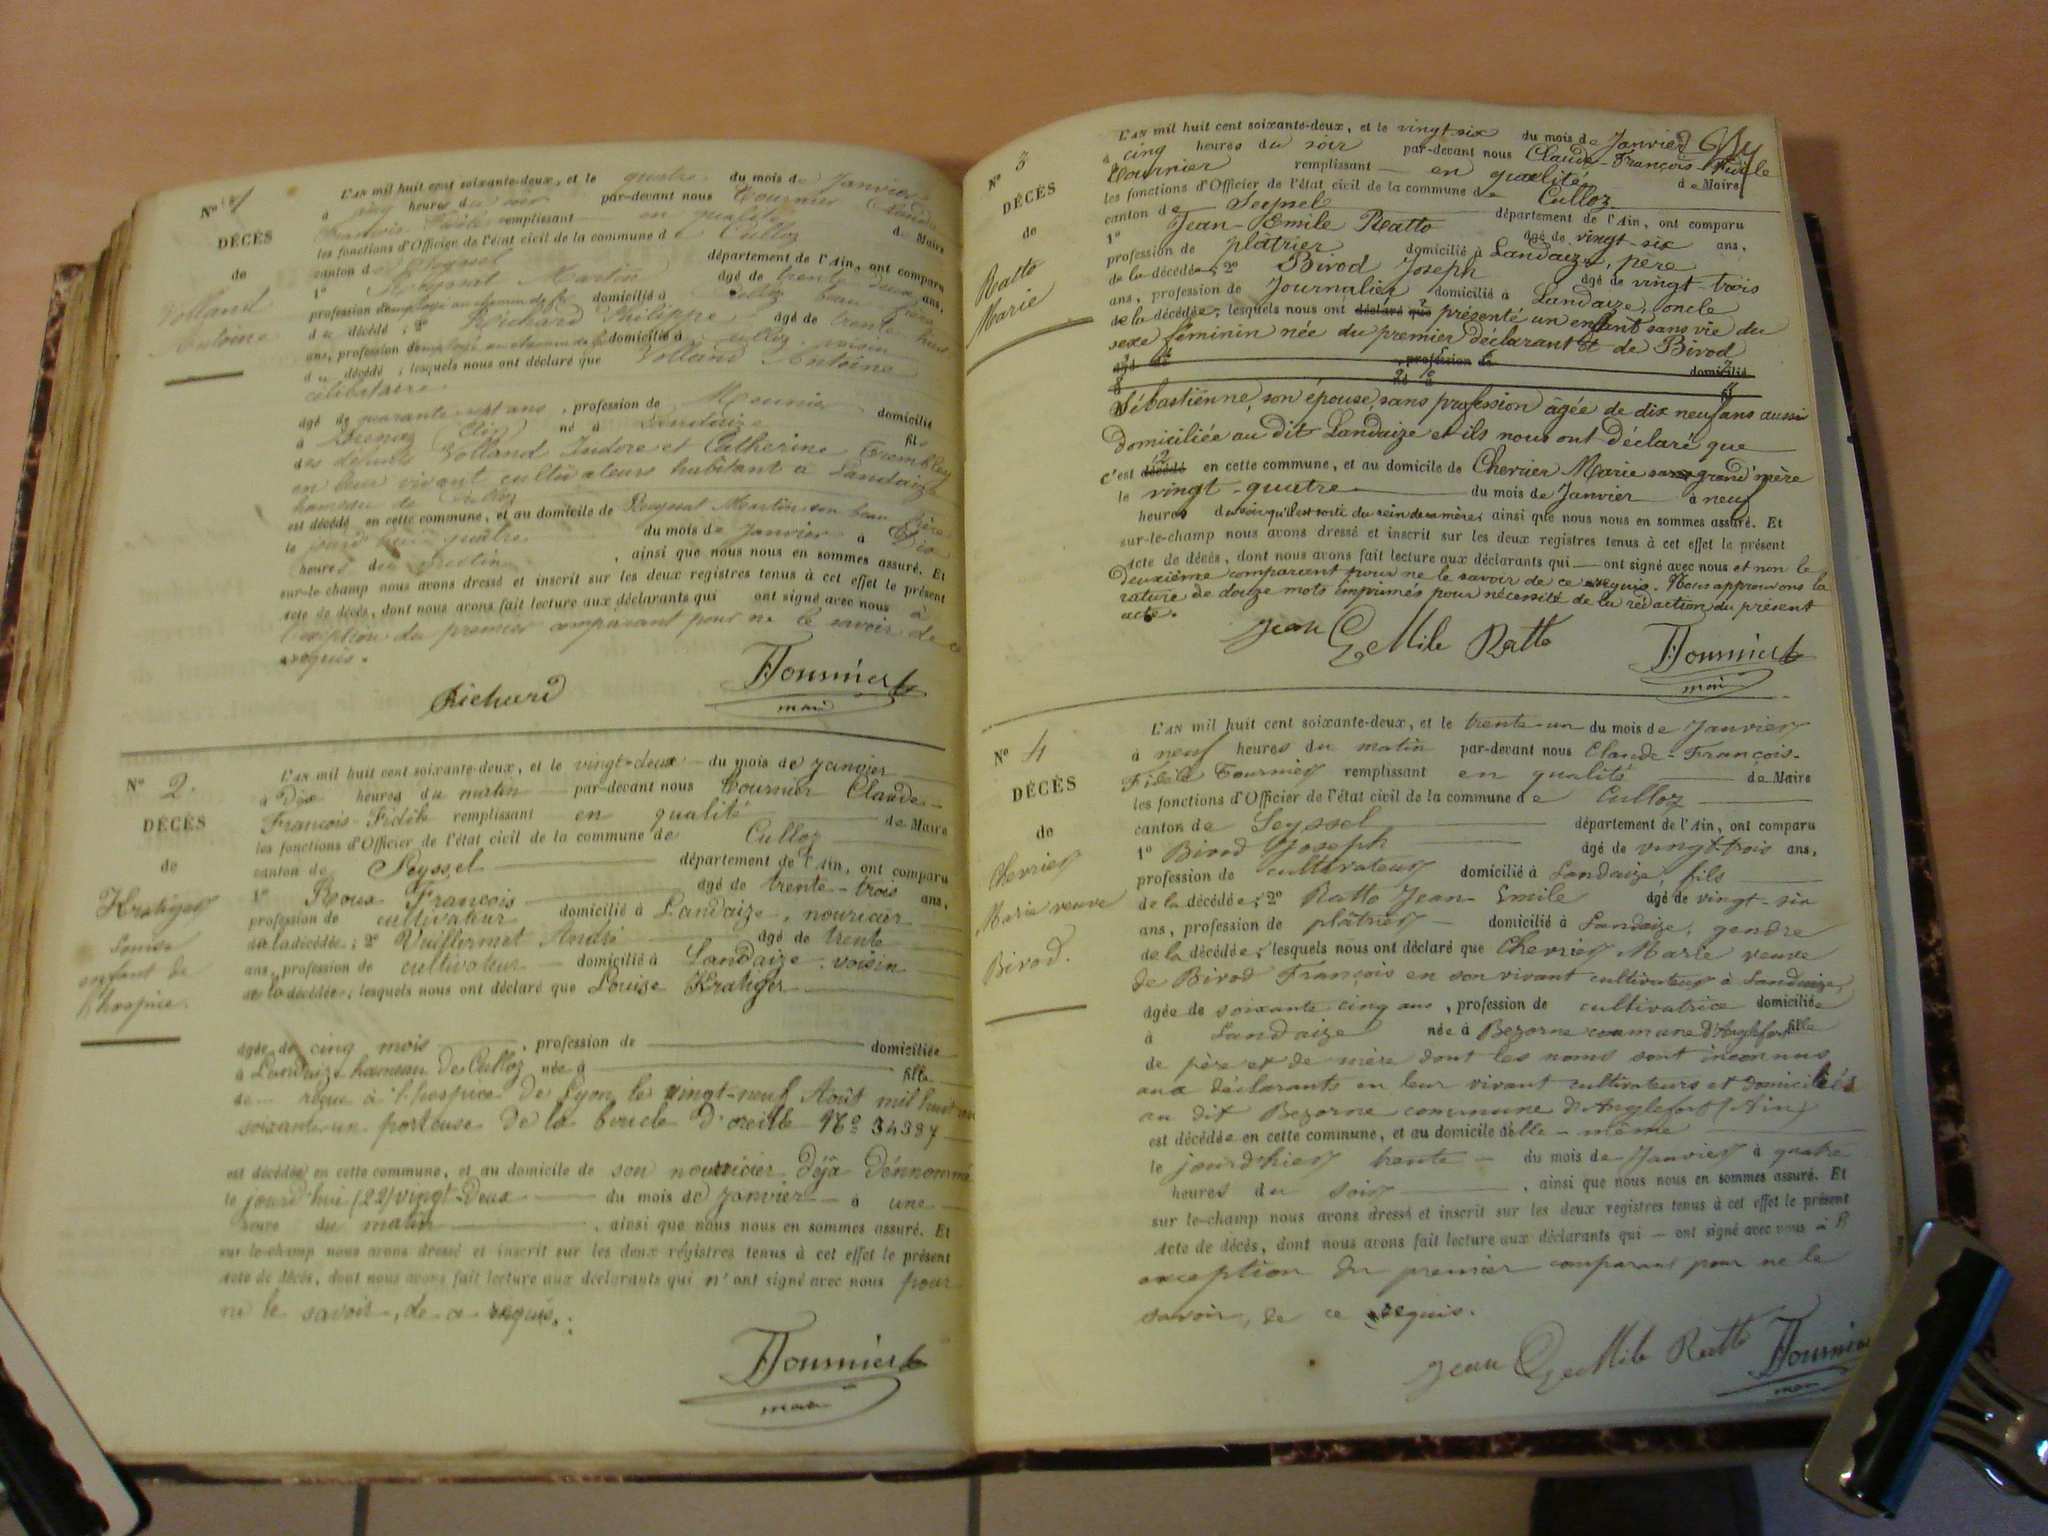 N° 1
DÉCÈS
de
Volland
Antoine
L'AN mil huit cent soixante-deux, et le quatre du mois de Janvier
à cinq heures du soir par-devant nous Tournier Claude
François Fidèle remplissant en qualité de Maire
les fonctions d'Officier de l'état civil de la commune de Culloz
canton de Seyssel département de l'Ain, ont comparu
1° Martin âgé de trente deux ans,
profession d'employé au chemin de fer domicilié à Culloz beau frère
du décédé ; 2° Richard Philippe âgé de trente huit
ans, profession d'employé au chemin de fer domicilié à Culloz, voisin
du décédé ; lesquels nous ont déclaré que Volland Antoine
célibataire
âgé de quarante sept ans, profession de Meunier domicilié
à né à Landaize fils
des défunts Volland Isidore et Catherine Trembley
en leur vivant cultivateurs habitant à Landaize
hameau de Culloz
est décédé en cette commune, et au domicile de Martin son beau frère
le jourd'hui quatre du mois de Janvier à Dix
heures du matin, ainsi que nous nous en sommes assuré. Et
sur-le-champ nous avons dressé et inscrit sur les deux registres tenus à cet effet le présent
acte de décès, dont nous avons fait lecture aux déclarants qui ont signé avec nous à
l'exception du premier comparant pour ne le savoir de ce
requis.
Richard FTournier
maire
N° 2.
DÉCÈS
de
Kratiger
Louise
enfant de
l'hospice
L'AN mil huit cent soixante-deux, et le vingt-deux du mois de janvier
à Dix heures du matin par-devant nous Tournier Claude-
François-Fidèle remplissant en qualité de Maire
les fonctions d'Officier de l'état civil de la commune de Culloz
canton de Seyssel département de l'Ain, ont comparu
1° Roux François âgé de trente-trois ans,
profession de cultivateur domicilié à Landaize, nouricier
de la décédée ; 2° Vuillermet André âgé de trente
ans, profession de cultivateur domicilié à Landaize, voisin
de la décédée, lesquels nous ont déclaré que Louise Kratiger
âgée de cinq mois, profession de domiciliée
à Landaize hameau de Culloz née à fille
de reçue à l'hospice de Lyon le vingt-neuf Août mil huit cent
soixante-un porteuse de la boucle d'oreille N° 34387
est décédée en cette commune, et au domicile de son nourricier déjà dénnommé
le jourd'hui (22) vingt-deux du mois de Janvier à une
heure du matin, ainsi que nous nous en sommes assuré. Et
sur-le-champ nous avons dressé et inscrit sur les deux régistres tenus à cet effet le présent
acte de décès, dont nous avons fait lecture aux déclarants qui n'ont signé avec nous pour
ne le savoir, de ce requis.
FTournier
maire
N° 3
DÉCÈS
de
Ratto
Marie
L'AN mil huit cent soixante-deux, et le vingt-six du mois de Janvier
à cinq heures du soir par-devant nous Claude-François-Fidèle
Tournier remplissant en qualité de Maire
les fonctions d'Officier de l'état civil de la commune de Culloz
canton de Seyssel département de l'Ain, ont comparu
1° Jean-Emile Ratto âgé de vingt-six ans,
profession de plâtrier domicilié à Landaize, père
de la décédée ; 2° Birod Joseph âgé de vingt-trois
ans, profession de Journalier domicilié à Landaize, oncle
de la décédée ; lesquels nous ont déclaré que présenté un enfant sans vie du
sexe féminin née du premier déclarant et de Birod
âgé de profession de domicilié
né à
Sébastienne, son épouse, sans profession âgée de dix neuf ans aussi
domiciliée au dit Landaize et ils nous ont déclaré que
c'est décédé en cette commune, et au domicile de Chevrier Marie sa grand'mère
le vingt-quatre du mois de Janvier à neuf
heures du soir qu'il est sorti du sein de sa mère, ainsi que nous nous en sommes assuré. Et
sur-le-champ nous avons dressé et inscrit sur les deux registres tenus à cet effet le présent
acte de décès, dont nous avons fait lecture aux déclarants qui ont signé avec nous et non le
deuxième comparant pour ne le savoir de ce requis. Nous approuvons la
rature de douze mots imprimés pour nécessité de la rédaction du présent
acte.
Jean Emile Ratto FTournier
maire
N° 4
DÉCÈS
de
Chevrier
Marie veuve
Birod.
L'AN mil huit cent soixante-deux, et le trente-un du mois de Janvier
à neuf heures du matin par-devant nous Claude-François-
Fidèle Tournier remplissant en qualité de Maire
les fonctions d'Officier de l'état civil de la commune de Culloz
canton de Seyssel département de l'Ain, ont comparu
1° Birod Joseph âgé de vingt-trois ans,
profession de cultivateur domicilié à Landaize, fils
de la décédée ; 2° Ratto Jean-Emile âgé de vingt-six
ans, profession de plâtrier domicilié à Landaize, gendre
de la décédée ; lesquels nous ont déclaré que Chevrier Marie veuve
de Birod François en son vivant cultivateur à Landaize,
âgée de soixante cinq ans, profession de cultivatrice domiciliée
à Landaize née à Bezorne commune d'Anglefort fille
de père et de mère dont les noms sont inconnus
aux déclarants en leur vivant cultivateurs et domiciliés
au dit Bezorne commune d'Anglefort (Ain)
est décédée en cette commune, et au domicile d'elle-même
le jourd'hier trente du mois de Janvier à quatre
heures du soir, ainsi que nous nous en sommes assuré. Et
sur le-champ nous avons dressé et inscrit sur les deux registres tenus à cet effet le présent
acte de décès, dont nous avons fait lecture aux déclarants qui ont signé avec nous à l'
exception du premier comparant pour ne le
savoir, de ce requis.
Jean Emile Ratto FTournier
maire